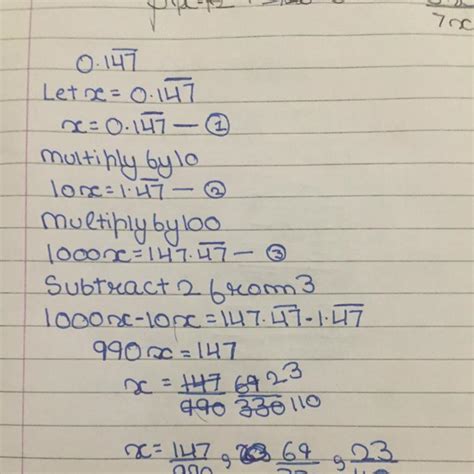 7x
0.14̅7̅
Let x = 0.14̅7̅
x = 0.14̅7̅ — ①
multiply by 10
10x = 1.4̅7̅ — ②
multiply by 100
1000x = 147.4̅7̅ — ③
Subtract 2 from 3
1000x - 10x = 147.4̅7̅ - 1.4̅7̅
990x = 147
x = 147 69 23
990 330 110
x = 147 , 69 , 23